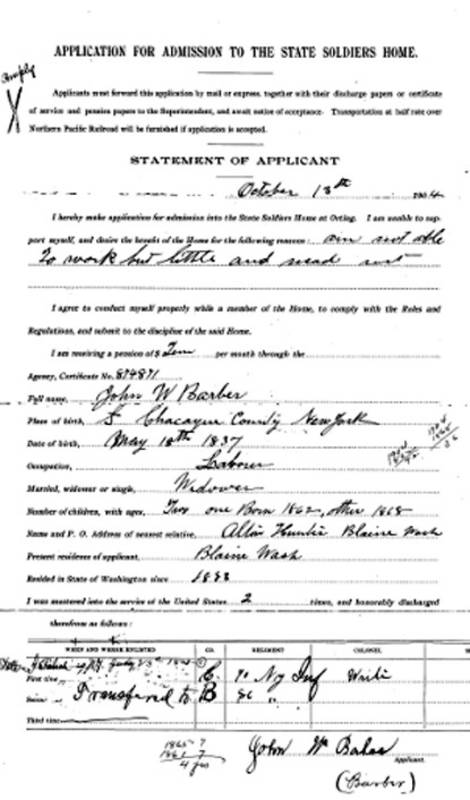 APPLICATION FOR ADMISSION TO THE STATE SOLDIERS HOME.
Applicants must forward this application by mail or express, together with their discharge papers or certificate
of service and pension papers to the Superintendent, and await notice of acceptance. Transportation at half rate over
Northern Pacific Railroad will be furnished if application is accepted.
STATEMENT OF APPLICANT
October 13th 1904
I hereby make application for admission into the State Soldiers Home at Orting. I am unable to sup-
port myself, and desire the benefit of the Home for the following reason: am not able
To work but little and need rest
I agree to conduct myself properly while a member of the Home, to comply with the Rules and
Regulations, and submit to the discipline of the said Home.
I am receiving a pension of $ Ten per month through the
Agency, Certificate No. 874871
Full name, John W Barber
Place of birth, County New York
Date of birth, May 18th 1837
Occupation, Laborer
Married, widower or single, Widower
Number of children, with ages, Two one Born 1862, other 1868
Name and P. O. Address of nearest relative, Hunter Blaine Wash
Present residence of applicant, Blaine Wash
Resided in State of Washington since 1888
I was mustered into the service of the United States 2 times, and honorably discharged
therefrom as follows:
WHEN AND WHERE ENLISTED CO. REGIMENT COLONEL
First time N.Y. July C Ny Inf
Second Transferred to B "
Third time
1865 7
1861 7
4 yrs
John W
Applicant.
(Barber)